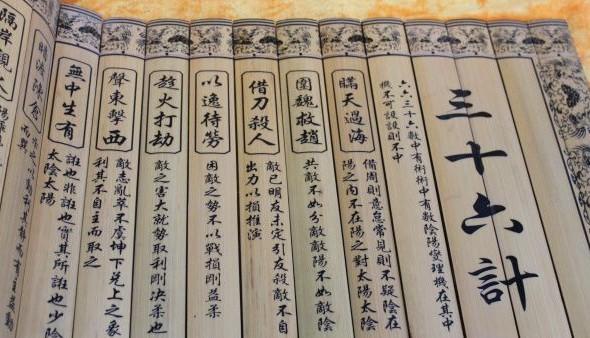 三十六計
六六三十六數中有術術中有數陰陽燮理機在其中
機不可設設則不中
瞞天過海
備周則意怠常見則不疑陰在
陽之內不在陽之對太陽太陰
圍魏救趙
共敵不如分敵敵陽不如敵陰
借刀殺人
敵已明友未定引友殺敵不自
出力以損推演
以逸待勞
困敵之勢不以戰損剛益柔
趁火打劫
敵之害大就勢取利剛決柔也
聲東擊西
敵志亂萃不虞坤下兌上之象
利其不自主而取之
無中生有
誑也非誑也實其所誑也少陰
太陰太陽
隔岸觀火